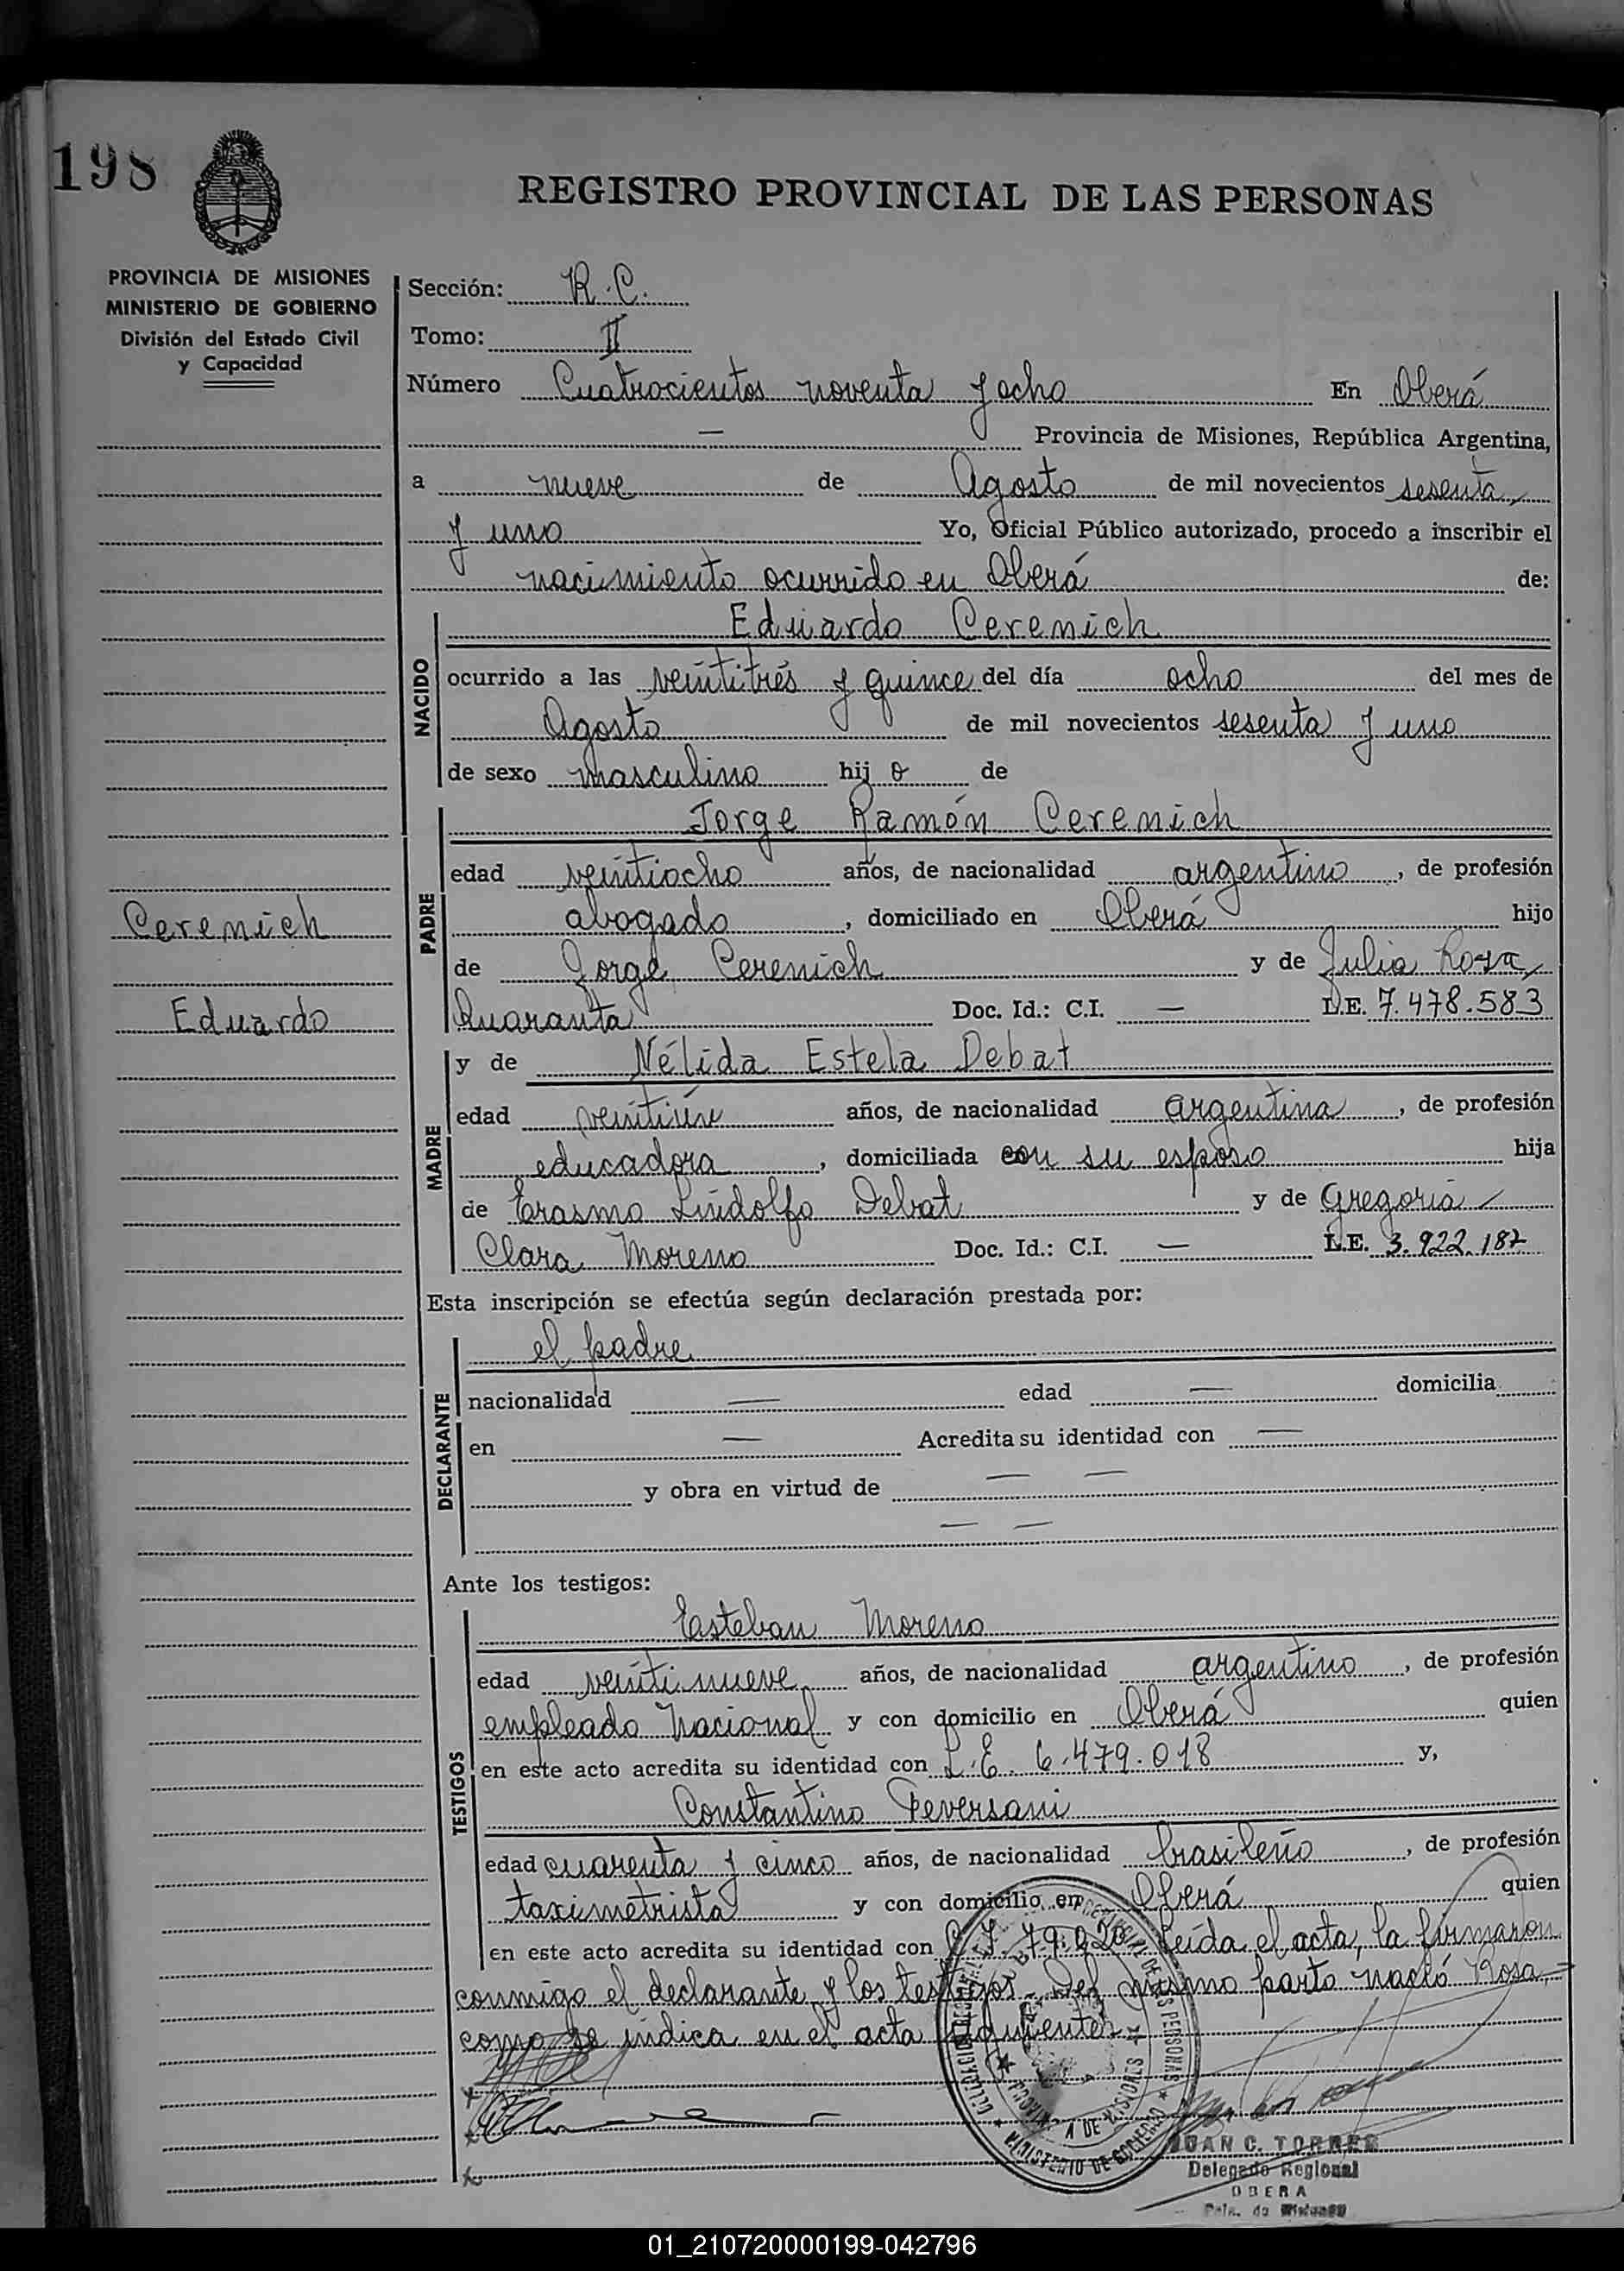 198
REGISTRO PROVINCIAL DE LAS PERSONAS
PROVINCIA DE MISIONES
MINISTERIO DE GOBIERNO
División del Estado Civil
y Capacidad
Sección: R. C.
Tomo: II
Número Cuatrocientos noventa y ocho En Oberá
— Provincia de Misiones, República Argentina,
a nueve de Agosto de mil novecientos sesenta
y uno Yo, Oficial Público autorizado, procedo a inscribir el
nacimiento ocurrido en Oberá de:
NACIDO
Eduardo Cerenich
ocurrido a las veintitrés y quince del día ocho del mes de
Agosto de mil novecientos sesenta y uno
de sexo masculino hijo de
PADRE
Jorge Ramón Cerenich
edad veintiocho años, de nacionalidad argentino, de profesión
abogado, domiciliado en Oberá hijo
de Jorge Cerenich y de Julia Rosa
Quaranta Doc. Id.: C.I. — L.E. 7.478.583
Cerenich
Eduardo
MADRE
y de Nélida Estela Debat
edad veintiún años, de nacionalidad argentina, de profesión
educadora, domiciliada con su esposo hija
de Erasmo Lindolfo Debat y de Gregoria
Clara Moreno Doc. Id.: C.I. — L.E. 3.922.187
Esta inscripción se efectúa según declaración prestada por:
DECLARANTE
el padre
nacionalidad — edad — domicilia
en — Acredita su identidad con —
y obra en virtud de — —
— —
Ante los testigos:
TESTIGOS
Esteban Moreno
edad veinti nueve años, de nacionalidad argentino, de profesión
empleado Nacional y con domicilio en Oberá quien
en este acto acredita su identidad con L.E. 6.479.018 y,
Constantino Peversani
edad cuarenta y cinco años, de nacionalidad brasileño, de profesión
taximetrista y con domicilio en Oberá quien
en este acto acredita su identidad con Leída el acta, la firmaron
conmigo el declarante y los testigos. Del mismo parto nació Rosa,
como se indica en el acta siguiente.
PROVINCIA DE MISIONES
MINISTERIO DE GOBIERNO
JUAN C. TORRES
Delegado Regional
OBERA
Pcia. de Misiones
01_210720000199-042796